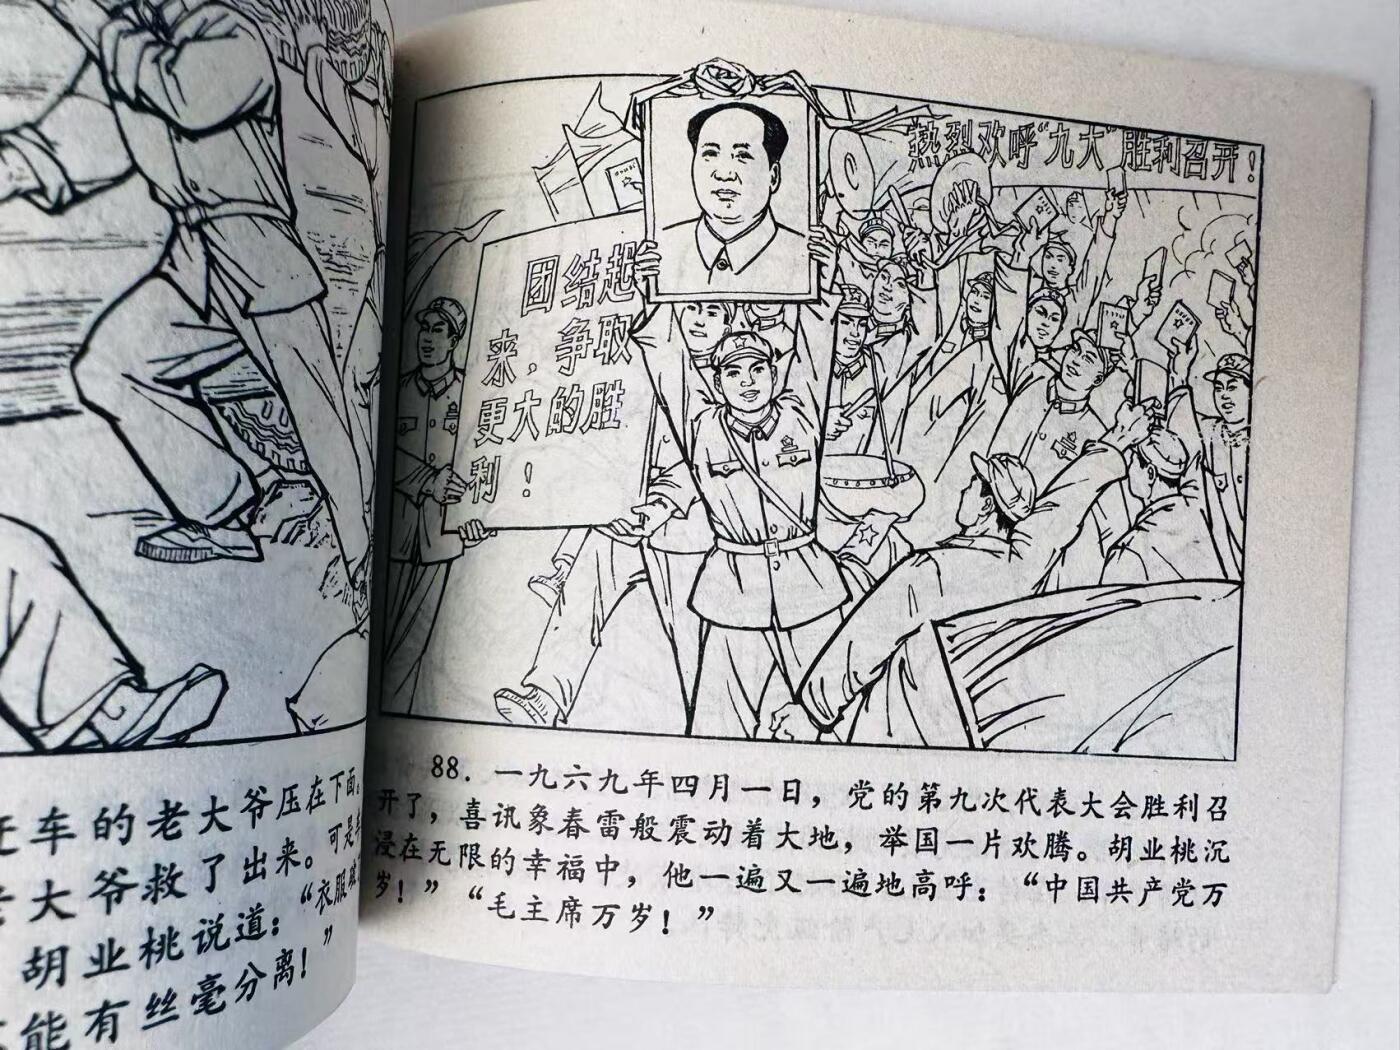 车的老大爷压在下面。
大爷救了出来。可是
胡业桃说道：“衣服
能有丝毫分离！”
热烈欢呼“九大”胜利召开！
团结起
来，争取
更大的胜
利！
88. 一九六九年四月一日，党的第九次代表大会胜利召
开了，喜讯象春雷般震动着大地，举国一片欢腾。胡业桃沉
浸在无限的幸福中，他一遍又一遍地高呼：“中国共产党万
岁！”“毛主席万岁！”